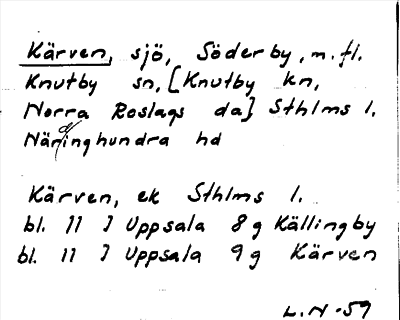 Kärven, sjö, Söderby, m.fl.
Knutby sn, [Knutby kn,
Norra Roslags da] Sthlms l.
Närdinghundra hd
Kärven, ek Sthlms l.
bl. 11 I Uppsala 8g Källingby
bl. 11 I Uppsala 9g Kärven
L.N-59